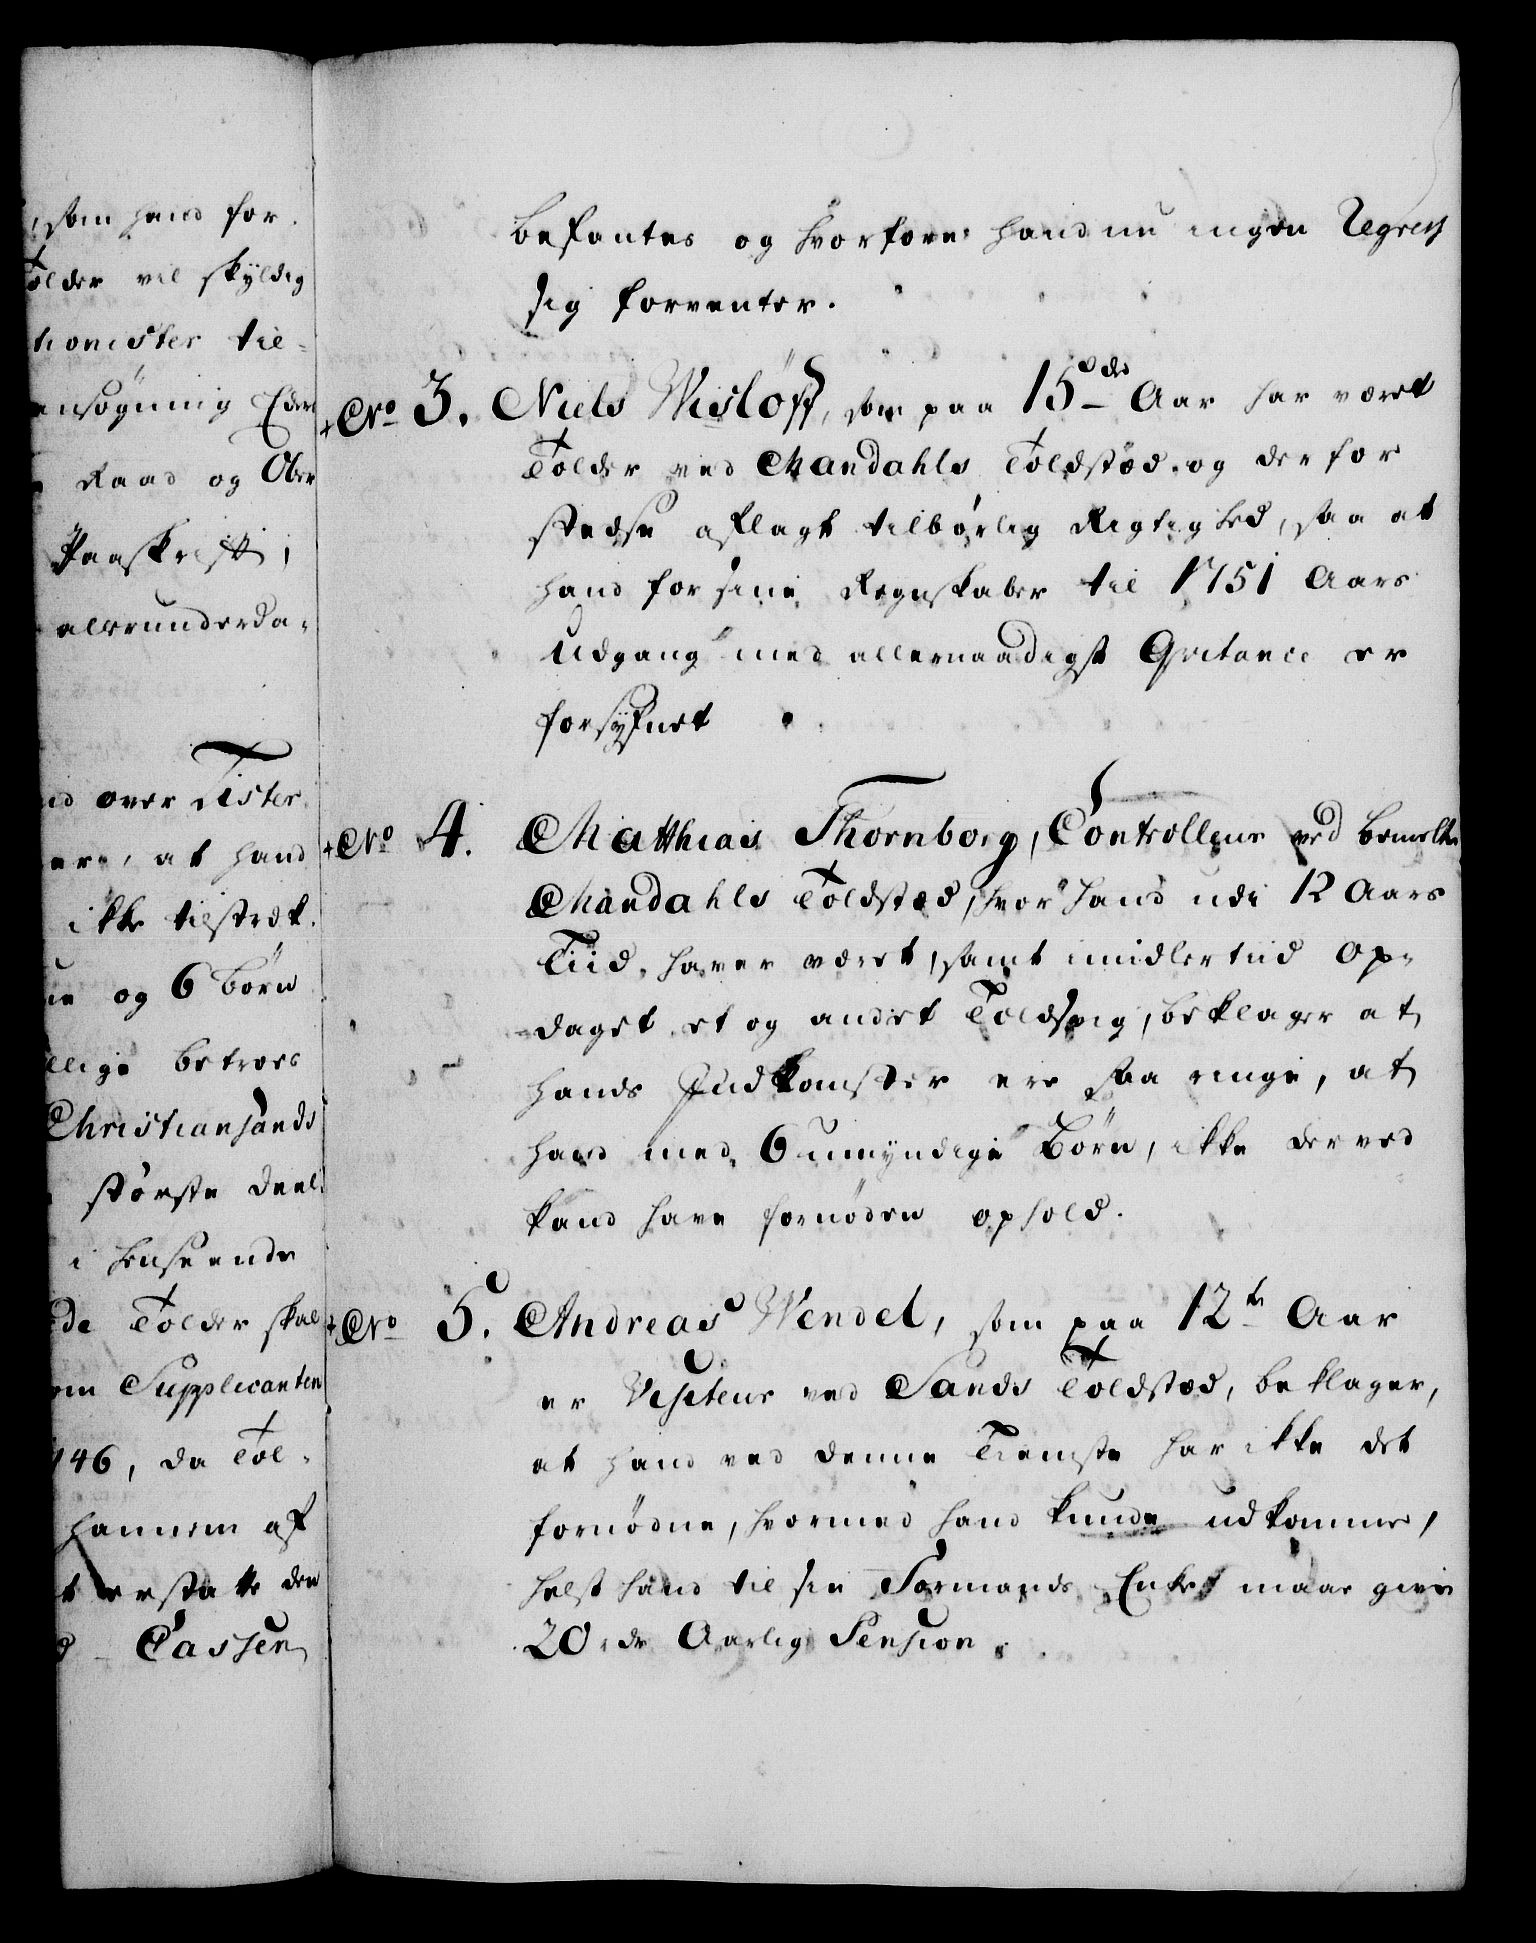 , som hand for.
Tolder vil skyldig
tionister til-
ansøgning Eders
Raad og Ober
Paaskrifft,
allerunderda-
nd over Lister
ere, at hand
ikke tilstræk.
ue og 6 Børn
llige betroes
Christiansands
største Deel
i henseende
Tolder skal
om Supplicanten
746, da Tol-
hannem af
t erstatte den
Cassen
befantes og hvorfore hand nu ingen Regress
sig forventer.
No 3. Niels Wisløff, som paa 15de Aar har været
Tolder ved Mandahls Toldstæd og derfor
stedse aflagt tilbørlig Rigtighed, saa at
hand for sine Regnskaber til 1751 Aars
Udgang med allernaadigst Qvitance er
forsyfnet
No 4. Matthias Thornborg, Controlleur ved bemelte
Mandahls Toldstæd, hvor hand udi 12 Aars
Tiid haver været, samt imidlertiid op-
daget et og andet Toldsvig, beklager at
hands Indkomster ere saa ringe, at
hand med 6 umyndige Børn, ikke derved
kand have fornøden ophold.
No 5. Andreas Wendel, som paa 12te Aar
er Visiteur ved Sands Toldstæd, beklager,
at hand ved denne Tieniste har ikke det
fornødne, hvormed hand kunde udkomme,
helst hand til sin Formands Enke maae give
20 rdr Aarlig Pension.